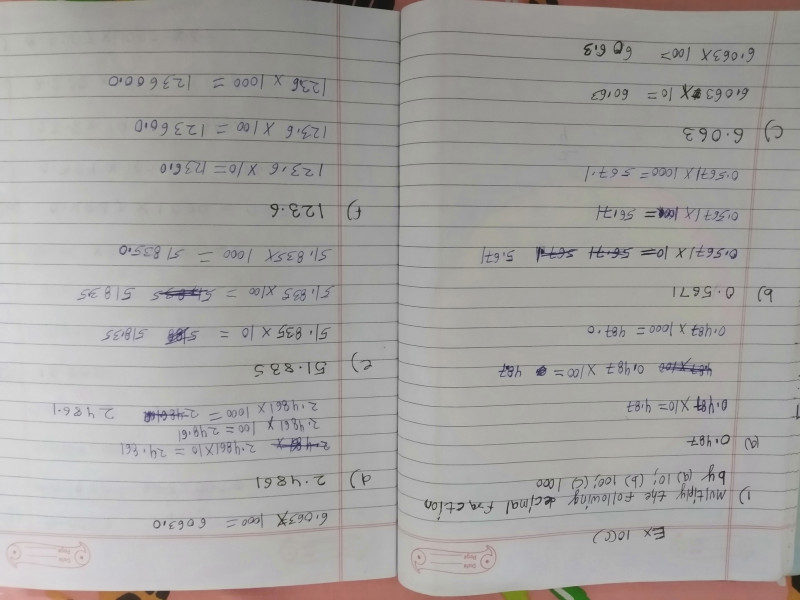 Date
Page
Ex 10(c)
1) Multiply the following decimal fraction
by (a) 10; (b) 100; (c) 1000
a) 0.487
0.487 X 10 = 4.87
0.487 X 100 = 48.7
0.487 X 1000 = 487.0
b) 0.5671
0.5671 X 10 = 5.671
0.5671 X 100 = 56.71
0.5671 X 1000 = 567.1
c) 6.063
6.063 X 10 = 60.63
6.063 X 100 = 606.3
Date
Page
6.063 X 1000 = 6063.0
d) 2.4861
2.4861 X 10 = 24.861
2.4861 X 100 = 248.61
2.4861 X 1000 = 2486.1
e) 51.835
51.835 X 10 = 518.35
51.835 X 100 = 5183.5
51.835 X 1000 = 51835.0
f) 123.6
123.6 X 10 = 1236.0
123.6 X 100 = 12360.0
123.6 X 1000 = 123600.0